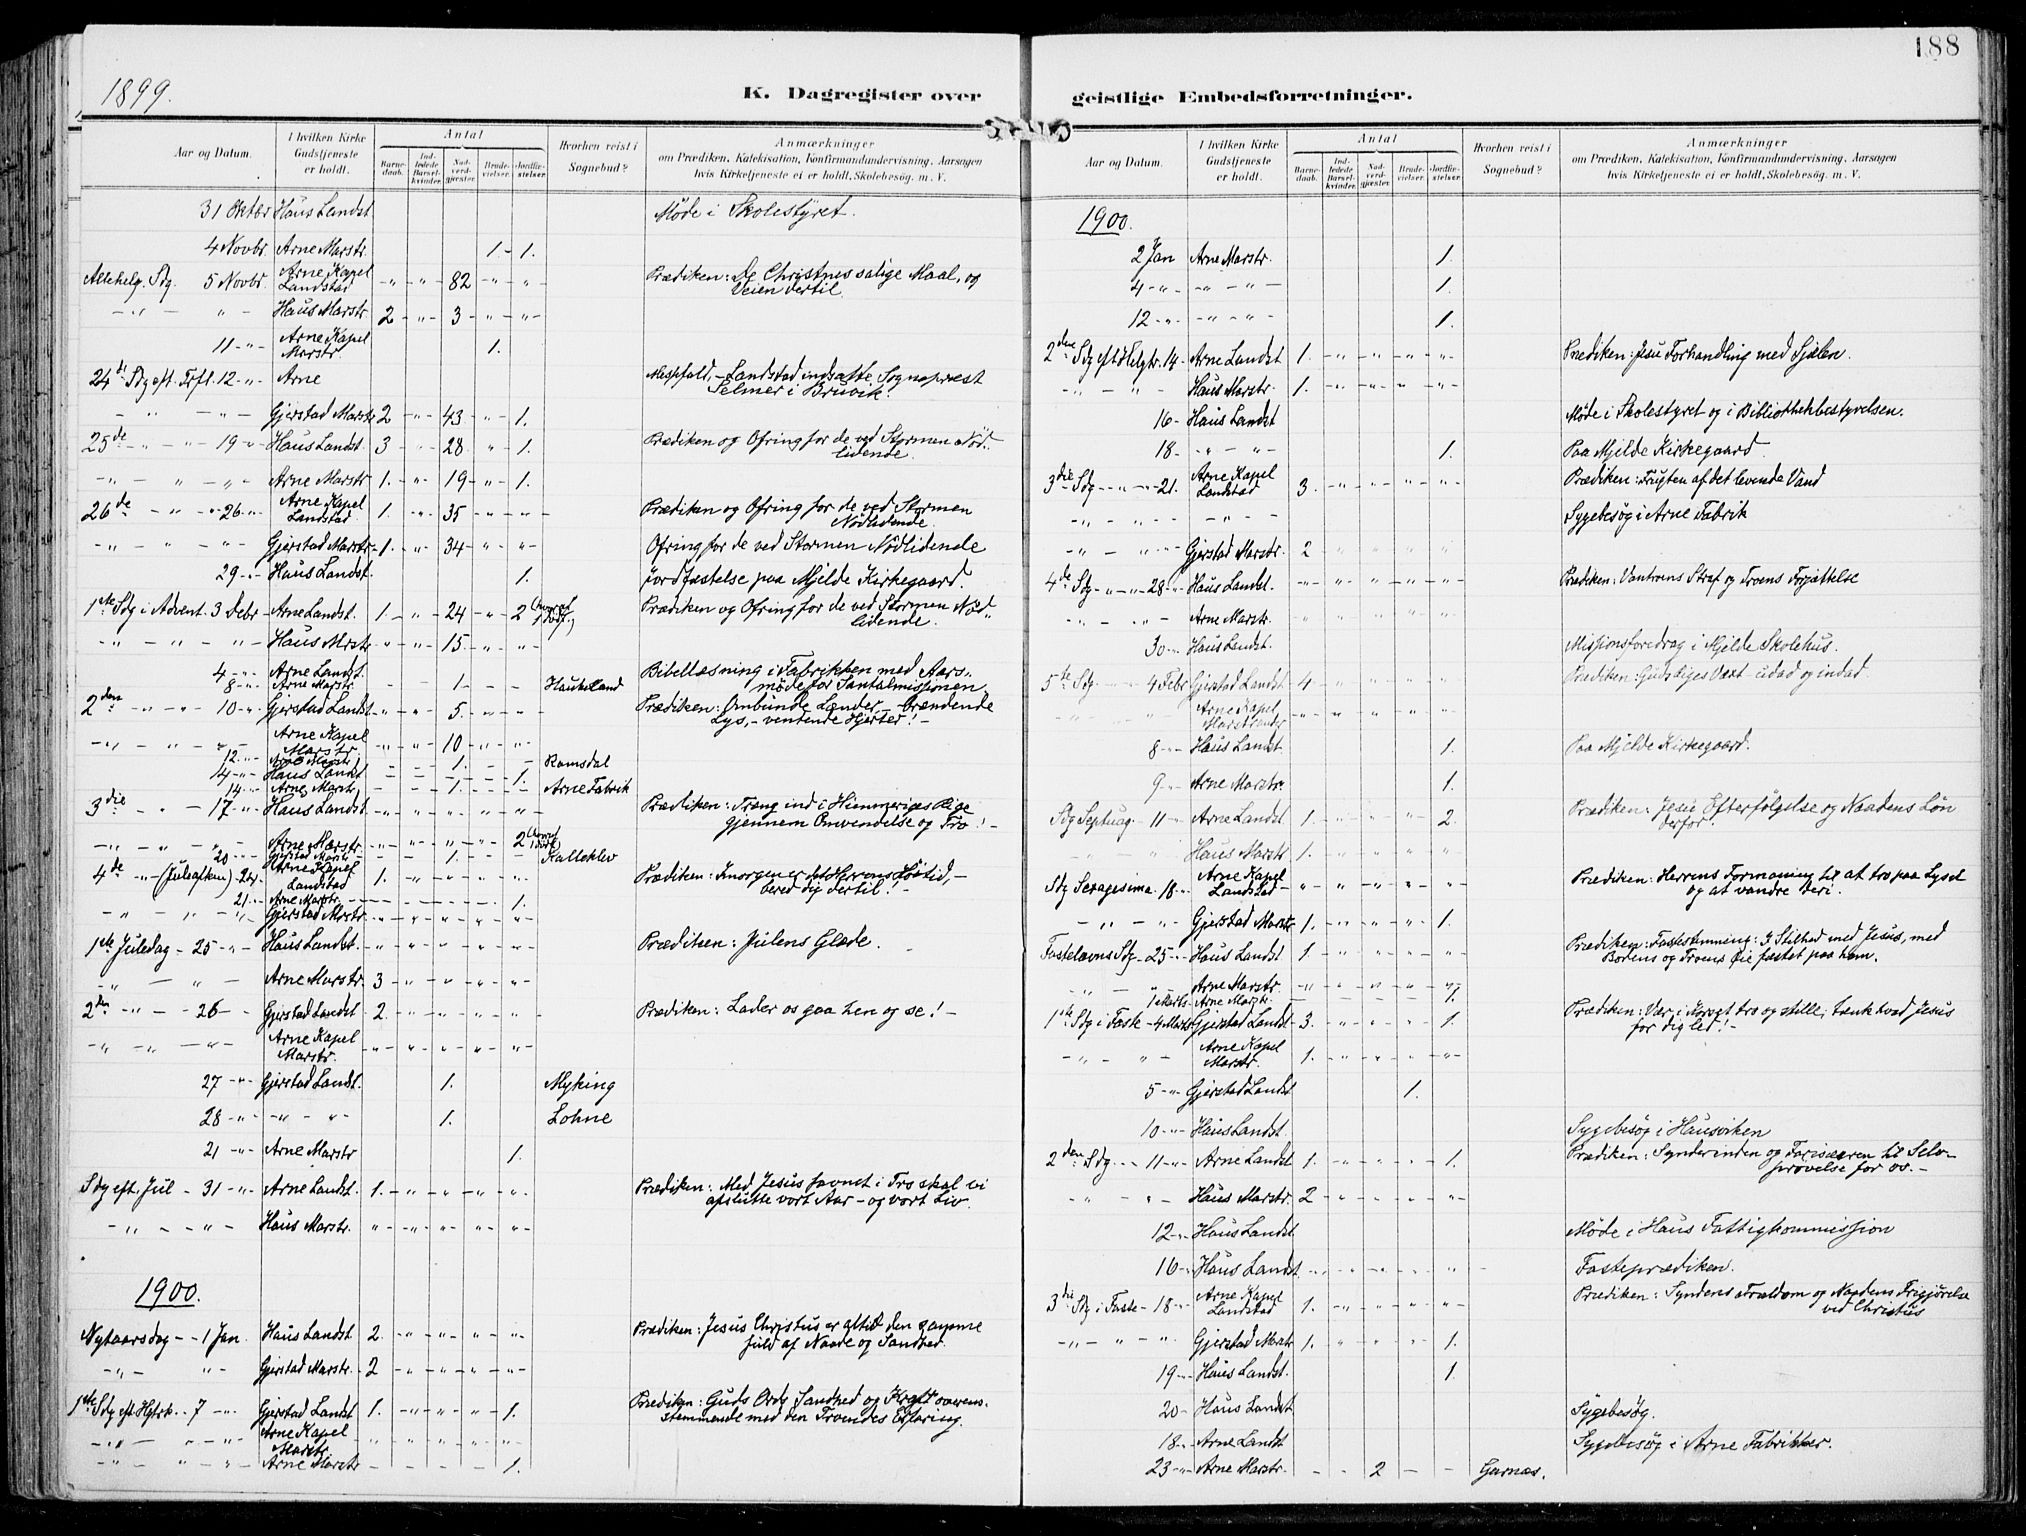 188
1899.
K. Dagregister over
geistlige Embedsforretninger.
Aar og Datum.
I hvilken Kirke Gudstjeneste er holdt.
Antal
Barnedaab.
Indledede Barselkvinder.
Nadverdgjester.
Brudevielser.
Jordfæstelser.
Hvorhen reist i Sognebud?
Anmærkninger
om Prædiken, Katekisation, Konfirmandundervisning, Aarsagen
hvis Kirketjeneste ei er holdt, Skolebesøg. m. V.
31 Oktbr Haus Landst. Møde i Skolestyret.
4 Novbr. Arne Marstr. 1. - 1.
Allehelg. Sdg. 5 Novbr. Arne Kapel Landstad - " - " - 82 - " - " - Prædiken: De Christnes salige Maal, og
Veien dertil.
- " - " - Haus Marstr. 2 - " - 3 - " - " -
11 - " - Arne Kapel Marstr. 1.
24de Sdg eft. Trft. 12 - " - Arne Messfald, - Landstad indsatte Sognepræst
Selmer i Bruvik.
- " - " - Gjerstad Marstr 2 - " - 43 - " - 1.
25de - " - " - 19 " Haus Landst. 3 - " - 28 - " - 1. Prædiken og Ofring for de ved Stormen Nød-
lidende.
- " - " - " - Arne Marstr 1. - " - 19 - " - 1.
26de - " - " 26 - " - Arne Kapel Landstad 1. - " - 35 - " - " - Prædiken og Ofring for de ved Stormen
Nødlidende.
- " - " - " - Gjerstad Marstr - 1. - " - 34 - " - " - Ofring for de ved Stormen Nødlidende
29 - " - Haus Landst. 1. Jordfæstelse paa Mjelde Kirkegaard.
1ste Sdg i Advent. 3 Debr - Arne Landst. 1. - " - 24 - " - 2 Prædiken og Ofring for de ved Stormen Nød-
lidende.
- " - " - " - Haus Mrstr. " - " - 15 - " - " -
4 - " - Arne Landst. Bibellæsning i Fabrikken med Aars-
møde for Santalmissionen.
8 - " - Arne Marstr. - - 1. - - Haukeland
2den - " - " - 10 - " Gjerstad Landst - " - " - 5 - " - " - Prædiken: Ombundne Lænder, - brændende
Lys, - ventende Hjerter! -
- " - " - " - Arne Kapel Marstr. - " - " - 10 - " - " -
12 - " - Arne Marstr. - - 1. - - Romsdal
14 - " - Haus Landst - - - - 1.
14 - " - Arne Marstr - - 1. - - Arne Fabrik
3die - " - 17 - " - Haus Landst - " - " - " - " - " - Prædiken: Træng ind i Himmeriges Rige
gjennem Omvendelse og Tro! -
- " - " - " - Arne Marstr. - " - " - " - " - 2
20 - " - Gjerstad Marstr - - 1. - - Kalleklev
4de - " - (Juleaften) 24. - Arne Kapel Landstad 1. - " - " - " - " - Prædiken: Imorgen er det Herrens Høitid, -
bered dig dertil! -
21 - " - Arne Marstr. - - - - 1.
- " - " - " - Gjerstad Mrstr - " - " - " - " - " -
1ste Juledag - 25 - " - Haus Landst. - " - " - " - " - " - Prædiken: Julens Glæde.
- " - " - Arne Marstr. 3 - " - " - " - " -
2den - " - 26 - " - Gjerstad Landst 2 - " - " - " - " - Prædiken: Lader os gaa hen og se! -
" - " - " - Arne Kapel Marstr. - " - " - " - " - " -
27 - " - Gjerstad Landst. 1. Myking
28 - " - " - " - 1. Lohne
21 - " - Arne Marstr 1.
Sdg eft. Jul - 31 - " - Arne Landst. 1. - " - " - " - " - Prædiken: Med Jesus favnet i Tro skal vi
afslutte vort Aar - og vort Liv.
- " - " - " - Haus Marstr. " - " - " - " - " -
1900.
Nytaarsdag - - 1 Jan Haus Landst 2 - " - " - " - " - Prædiken: Jesus Christus er altid den samme
fuld af Naade og Sandhed.
- " - " - Gjerstad Marstr. 2 - " - " - " - " -
1ste Sdg eft. Hgtrk. - 7 - " - Gjerstad Landst 1. - " - " - " - 1. Prædiken: Guds Ords Sandhed og Kraft overens-
stemmende med den Troendes Erfaring.
- " - " - " - Arne Kapel Marstr. " - " - " - " - " -
- " - " - " - Arne Marstr - - - - 1.
Aar og Datum.
I hvilken Kirke Gudstjeneste er holdt.
Antal
Barnedaab.
Indledede Barselkvinder.
Nadverdgjester.
Brudevielser.
Jordfæstelser.
Hvorhen reist i Sognebud?
Anmærkninger
om Prædiken, Katekisation, Konfirmandundervisning, Aarsagen
hvis Kirketjeneste ei er holdt, Skolebesøg. m. V.
1900.
2 Jan Arne Marstr. 1.
4 - " - " - " - 1.
12 - " - " - " - 1.
2den Sdg eft. Helgtr. 14 - Arne Landst 1. - " - " - " - " - Prædiken: Jesu Forhandling med Sjælen.
- " - " - Haus Marstr. 1. - " - " - " - " -
16 - Haus Landst Møde i Skolestyret og i Bibliothekbestyrelsen.
18 - " - " - 1. Paa Mjelde Kirkegaard.
3die Sdg - " - " - 21. Arne Kapel Landstad 3. - " - " - " - " - Prædiken: Frugten af det levende Vand
- " - " - " - Sygebesøg i Arne Fabrik
- " - " - Gjerstad Marstr. 2 - " - " - " - " -
4de Sdg - " - " - 28 - " Haus Landst. - " - " - " - " - " - Prædiken: Vantroens Straf og Troens Forjættelse
- " - " - Arne Marstr. " " " " "
30 - " Haus Landst. Missionsforedrag i Mjelde Skolehus.
5te Sdg - 4 Febr Gjerstad Landst 4 - " - " - " - " - Prædiken: Gudsriges Vext - udad og indad.
Arne Kapel - " - " - " - " - " -
8 - " Haus Landst. 1. Paa Mjelde Kirkegaard.
9 - " Arne Marstr. 1.
Sdg Septuag - 11 - " Arne Landst 1. - " - " - " - 2. Prædiken: Jesu Efterfølgelse og Naadens Løn
derfor.
Haus Marstr 1. - " - " - " - " -
Sdg Sexagesima. 18 - " Arne Kapel Landstad " - " - " - " - " - Prædiken: Herrens Formaning til at tro paa Lyset
og at vandre deri.
- " - " - Gjerstad Marstr 1. - " - " - " - 1.
Fastelavns Sdg - 25 - " Haus Landst 1. - " - " - " - " - Prædiken: Fastestemning: I Stilhed med Jesus, med
Bodens og Troens Øie fæstet paa ham.
- " - " Arne Marstr. - " - " - " - " - " -
1 Marts - Arne Marstr. - - - - 1.
1ste Sdg i Faste - 4 Marts Gjerstad Landst - 3. - " - " - " - 1. Prædiken: Vær i Korset tro og stille; tænk hvad Jesus
for dig led! -
- " - " - Arne Kapel Marstr. 1. - " - " - " - " -
5 - " Gjerstad Landst 1.
10 - " Haus Landst. Sygebesøg i Hausviken
2den Sdg - - 11 - " Arne Landst 1. - " - " - " - 1. Prædiken: Synderinden og Farisæeren til Selv-
prøvelse for os. -
- " - " - Haus Marstr. 2 - " - " - " - " -
12 - " Haus Landst. Møde i Haus Fattigkommission
16 - " Haus Landst - " - " - " - " - " - Fasteprædiken.
3die Sdg i Faste - 18 - " Arne Kapel Landstad 1. - " - " - " - " - Prædiken: Syndens Trældom og Naadens Frigjørelse
ved Christus
- " - " - " Gjerstad Marstr 1. - " - " - " - 1.
19 - " Haus Landst. 1.
20 - Haus Landst Sygebesøg.
18 - " Arne Landst Sygebesøg i Arne Fabrikker.
23 - " Arne Marstr. - - 2 - - Garnæs.